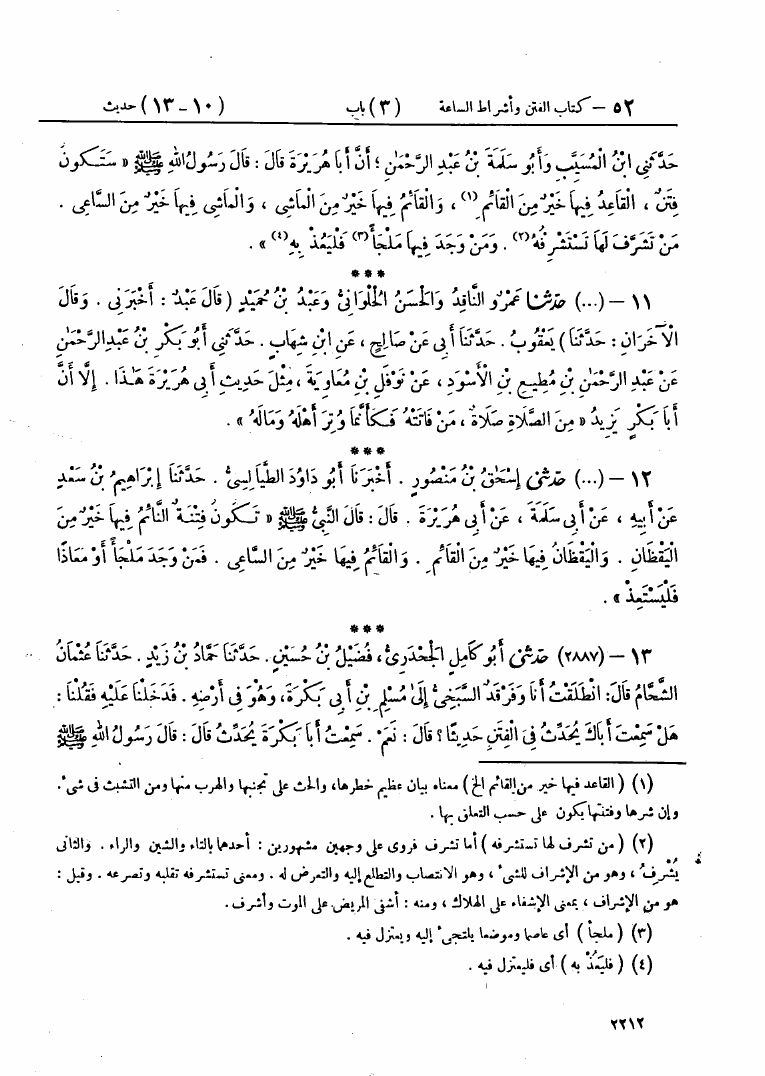 ٥٢ – كتاب الفتن وأشراط الساعة (٣) باب (١٠–١٣) حديث
حَدَّثَنِى ابْنُ الْمُسَيَّبِ وَأَبُو سَلَمَةَ بْنُ عَبْدِ الرَّحْمٰنِ ؛ أَنَّ أَبَا هُرَيْرَةَ قَالَ : قَالَ رَسُولُ اللهِ ﷺ « سَتَكُونُ
فِتَنٌ ، الْقَاعِدُ فِيهَا خَيْرٌ مِنَ الْقَائِمِ (١) ، وَالْقَائِمُ فِيهَا خَيْرٌ مِنَ الْمَاشِى ، وَالْمَاشِى فِيهَا خَيْرٌ مِنَ السَّاعِى .
مَنْ تَشَرَّفَ لَهَا تَسْتَشْرِفُهُ (٢) . وَمَنْ وَجَدَ فِيهَا مَلْجَأً (٣) فَلْيَعُذْ بِهِ (٤) » .
***
١١ – (...) حَدَّثَنَا عَمْرٌو النَّاقِدُ وَالْحَسَنُ الْحُلْوَانِىُّ وَعَبْدُ بْنُ حُمَيْدٍ ( قَالَ عَبْدٌ : أَخْبَرَنِى . وَقَالَ
الْآخَرَانِ : حَدَّثَنَا ) يَعْقُوبُ . حَدَّثَنَا أَبِى عَنْ صَالِحٍ ، عَنِ ابْنِ شِهَابٍ . حَدَّثَنِى أَبُو بَكْرِ بْنُ عَبْدِ الرَّحْمٰنِ
عَنْ عَبْدِ الرَّحْمٰنِ بْنِ مُطِيعِ بْنِ الْأَسْوَدِ ، عَنْ نَوْفَلِ بْنِ مُعَاوِيَةَ ، مِثْلَ حَدِيثِ أَبِى هُرَيْرَةَ هَٰذَا . إِلَّا أَنَّ
أَبَا بَكْرٍ يَزِيدُ « مِنَ الصَّلَاةِ صَلَاةٌ ، مَنْ فَاتَتْهُ فَكَأَنَّمَا وُتِرَ أَهْلَهُ وَمَالَهُ » .
***
١٢ – (...) حَدَّثَنِى إِسْحَٰقُ بْنُ مَنْصُورٍ . أَخْبَرَنَا أَبُو دَاوُدَ الطَّيَالِسِىُّ . حَدَّثَنَا إِبْرَاهِيمُ بْنُ سَعْدٍ
عَنْ أَبِيهِ ، عَنْ أَبِى سَلَمَةَ ، عَنْ أَبِى هُرَيْرَةَ . قَالَ : قَالَ النَّبِىُّ ﷺ « تَكُونُ فِتْنَةٌ النَّائِمُ فِيهَا خَيْرٌ مِنَ
الْيَقْظَانِ . وَالْيَقْظَانُ فِيهَا خَيْرٌ مِنَ الْقَائِمِ . وَالْقَائِمُ فِيهَا خَيْرٌ مِنَ السَّاعِى . فَمَنْ وَجَدَ مَلْجَأً أَوْ مَعَاذًا
فَلْيَسْتَعِذْ » .
***
١٣ – (٢٨٨٧) حَدَّثَنِى أَبُو كَامِلٍ الْجَحْدَرِىُّ ، فُضَيْلُ بْنُ حُسَيْنٍ . حَدَّثَنَا حَمَّادُ بْنُ زَيْدٍ . حَدَّثَنَا عُثْمَانُ
الشَّحَّامُ قَالَ: انْطَلَقْتُ أَنَا وَفَرْقَدٌ السَّبَخِىُّ إِلَىٰ مُسْلِمِ بْنِ أَبِى بَكْرَةَ، وَهُوَ فِى أَرْضِهِ . فَدَخَلْنَا عَلَيْهِ فَقُلْنَا :
هَلْ سَمِعْتَ أَبَاكَ يُحَدِّثُ فِى الْفِتَنِ حَدِيثًا ؟ قَالَ : نَعَمْ . سَمِعْتُ أَبَا بَكْرَةَ يُحَدِّثُ قَالَ : قَالَ رَسُولُ اللهِ ﷺ
(١) ( القاعد فيها خير من القائم الخ ) معناه بيان عظيم خطرها، والحث على تجنبها والهرب منها ومن التشبث فى شىء .
وإن شرها وفتنتها يكون على حسب التعلق بها .
(٢) ( من تشرف لها تستشرفه ) أما تشرف فروى على وجهين مشهورين : أحدهما بالتاء والشين والراء . والثانى
يُشْرِفُ ، وهو من الإشراف للشىء ، وهو الانتصاب والتطلع إليه والتعرض له . ومعنى تستشرفه تقلبه وتصرعه . وقيل :
هو من الإشراف ، بمعنى الإشفاء على الهلاك ، ومنه : أشفى المريض على الموت وأشرف .
(٣) ( ملجأ ) أى عاصما وموضعا يلتجىء إليه ويعتزل فيه .
(٤) ( فليَعُذْ به ) أى فليعتزل فيه .
٢٢١٢